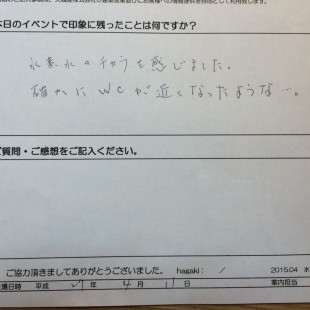 本日のイベントで印象に残ったことは何ですか?
水素水のチカラを感じました。
確かにWCが近くなったような…。
ご質問・ご感想をご記入ください。
ご協力頂きましてありがとうございました。 hagaki: /
2015.04 水
場日時 平成 27年 4月 11日 案内担当